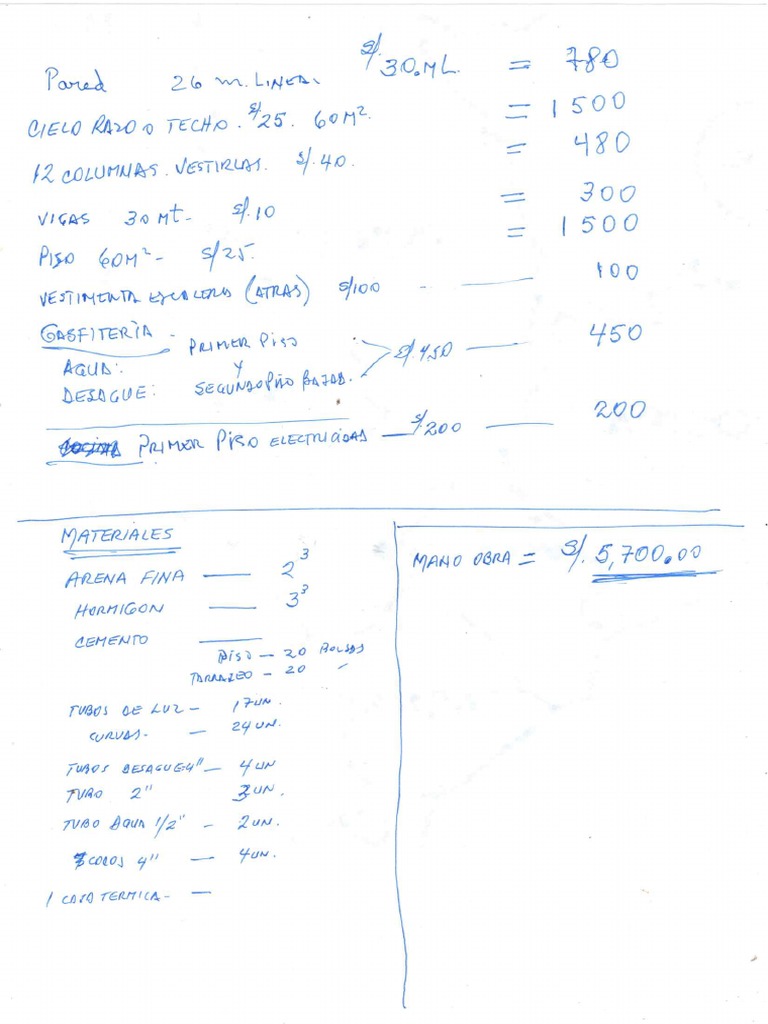 Pared 26 m. LINEAL S/. 30.ML. = 780
CIELO RAZO O TECHO. S/25. 60M². = 1500
12 COLUMNAS. VESTIRLAS. S/. 40. = 480
VIGAS 30 Mt- S/. 10 = 300
PISO 60M²- S/25. = 1500
VESTIMENTA ESCALERAS (ATRAS) S/100 - — 100
GASFITERÌA -
AGUA: PRIMER PISO
Y S/. 450 — 450
DESAGUE: SEGUNDO PISO BAJAD.
PRIMER PISO ELECTRICIDAD — S/200 — 200
MATERIALES
ARENA FINA — 2³
HORMIGON — 3³
CEMENTO —
PISO — 20 BOLSAS
TARRAJEO — 20 "
TUBOS DE LUZ — 17UN.
CURVAS. — 24UN.
TUBOS DESAGUE 4" — 4UN
TUBO 2" 3UN.
TUBO AGUA 1/2" - 2UN.
CODOS 4" — 4UN.
1 CAJA TERMICA - —
MANO OBRA = S/. 5,700.00